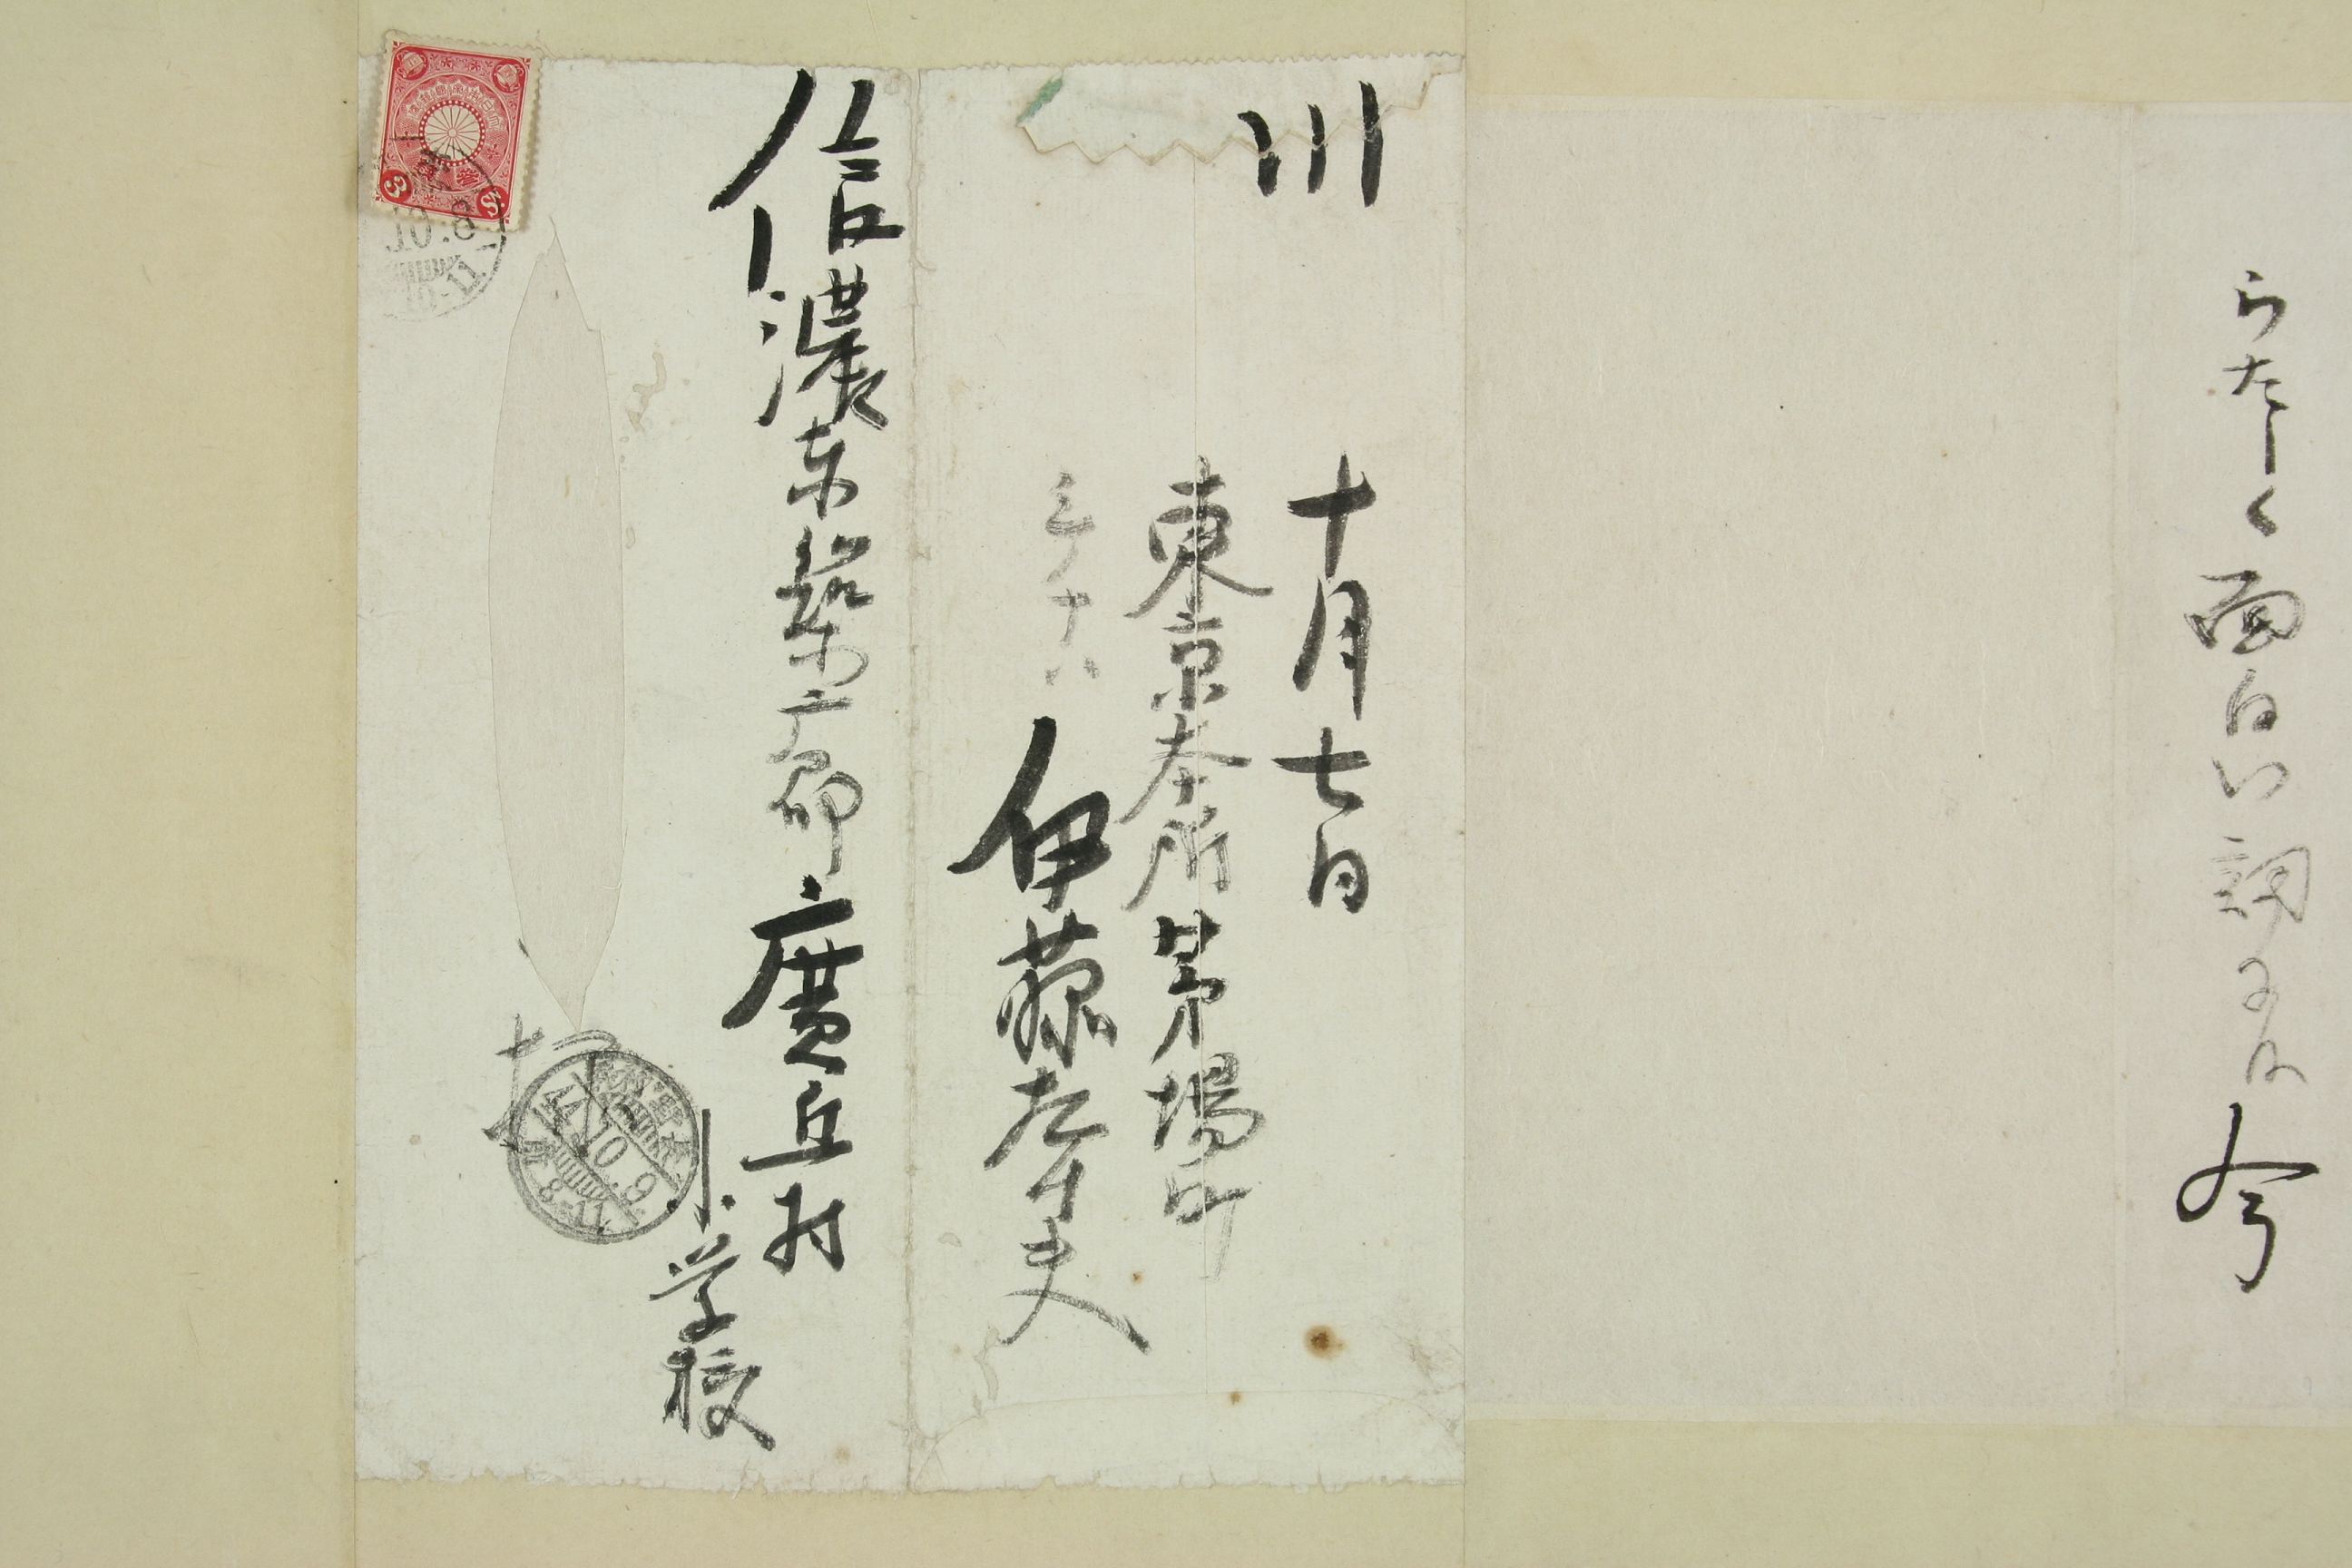 らたしく面白い詞る
十月七日
東京本所茅場町
三ノ十八
伊藤左千夫
信濃東筑摩郡廣丘村
小学校
44.10.9
10.8
3